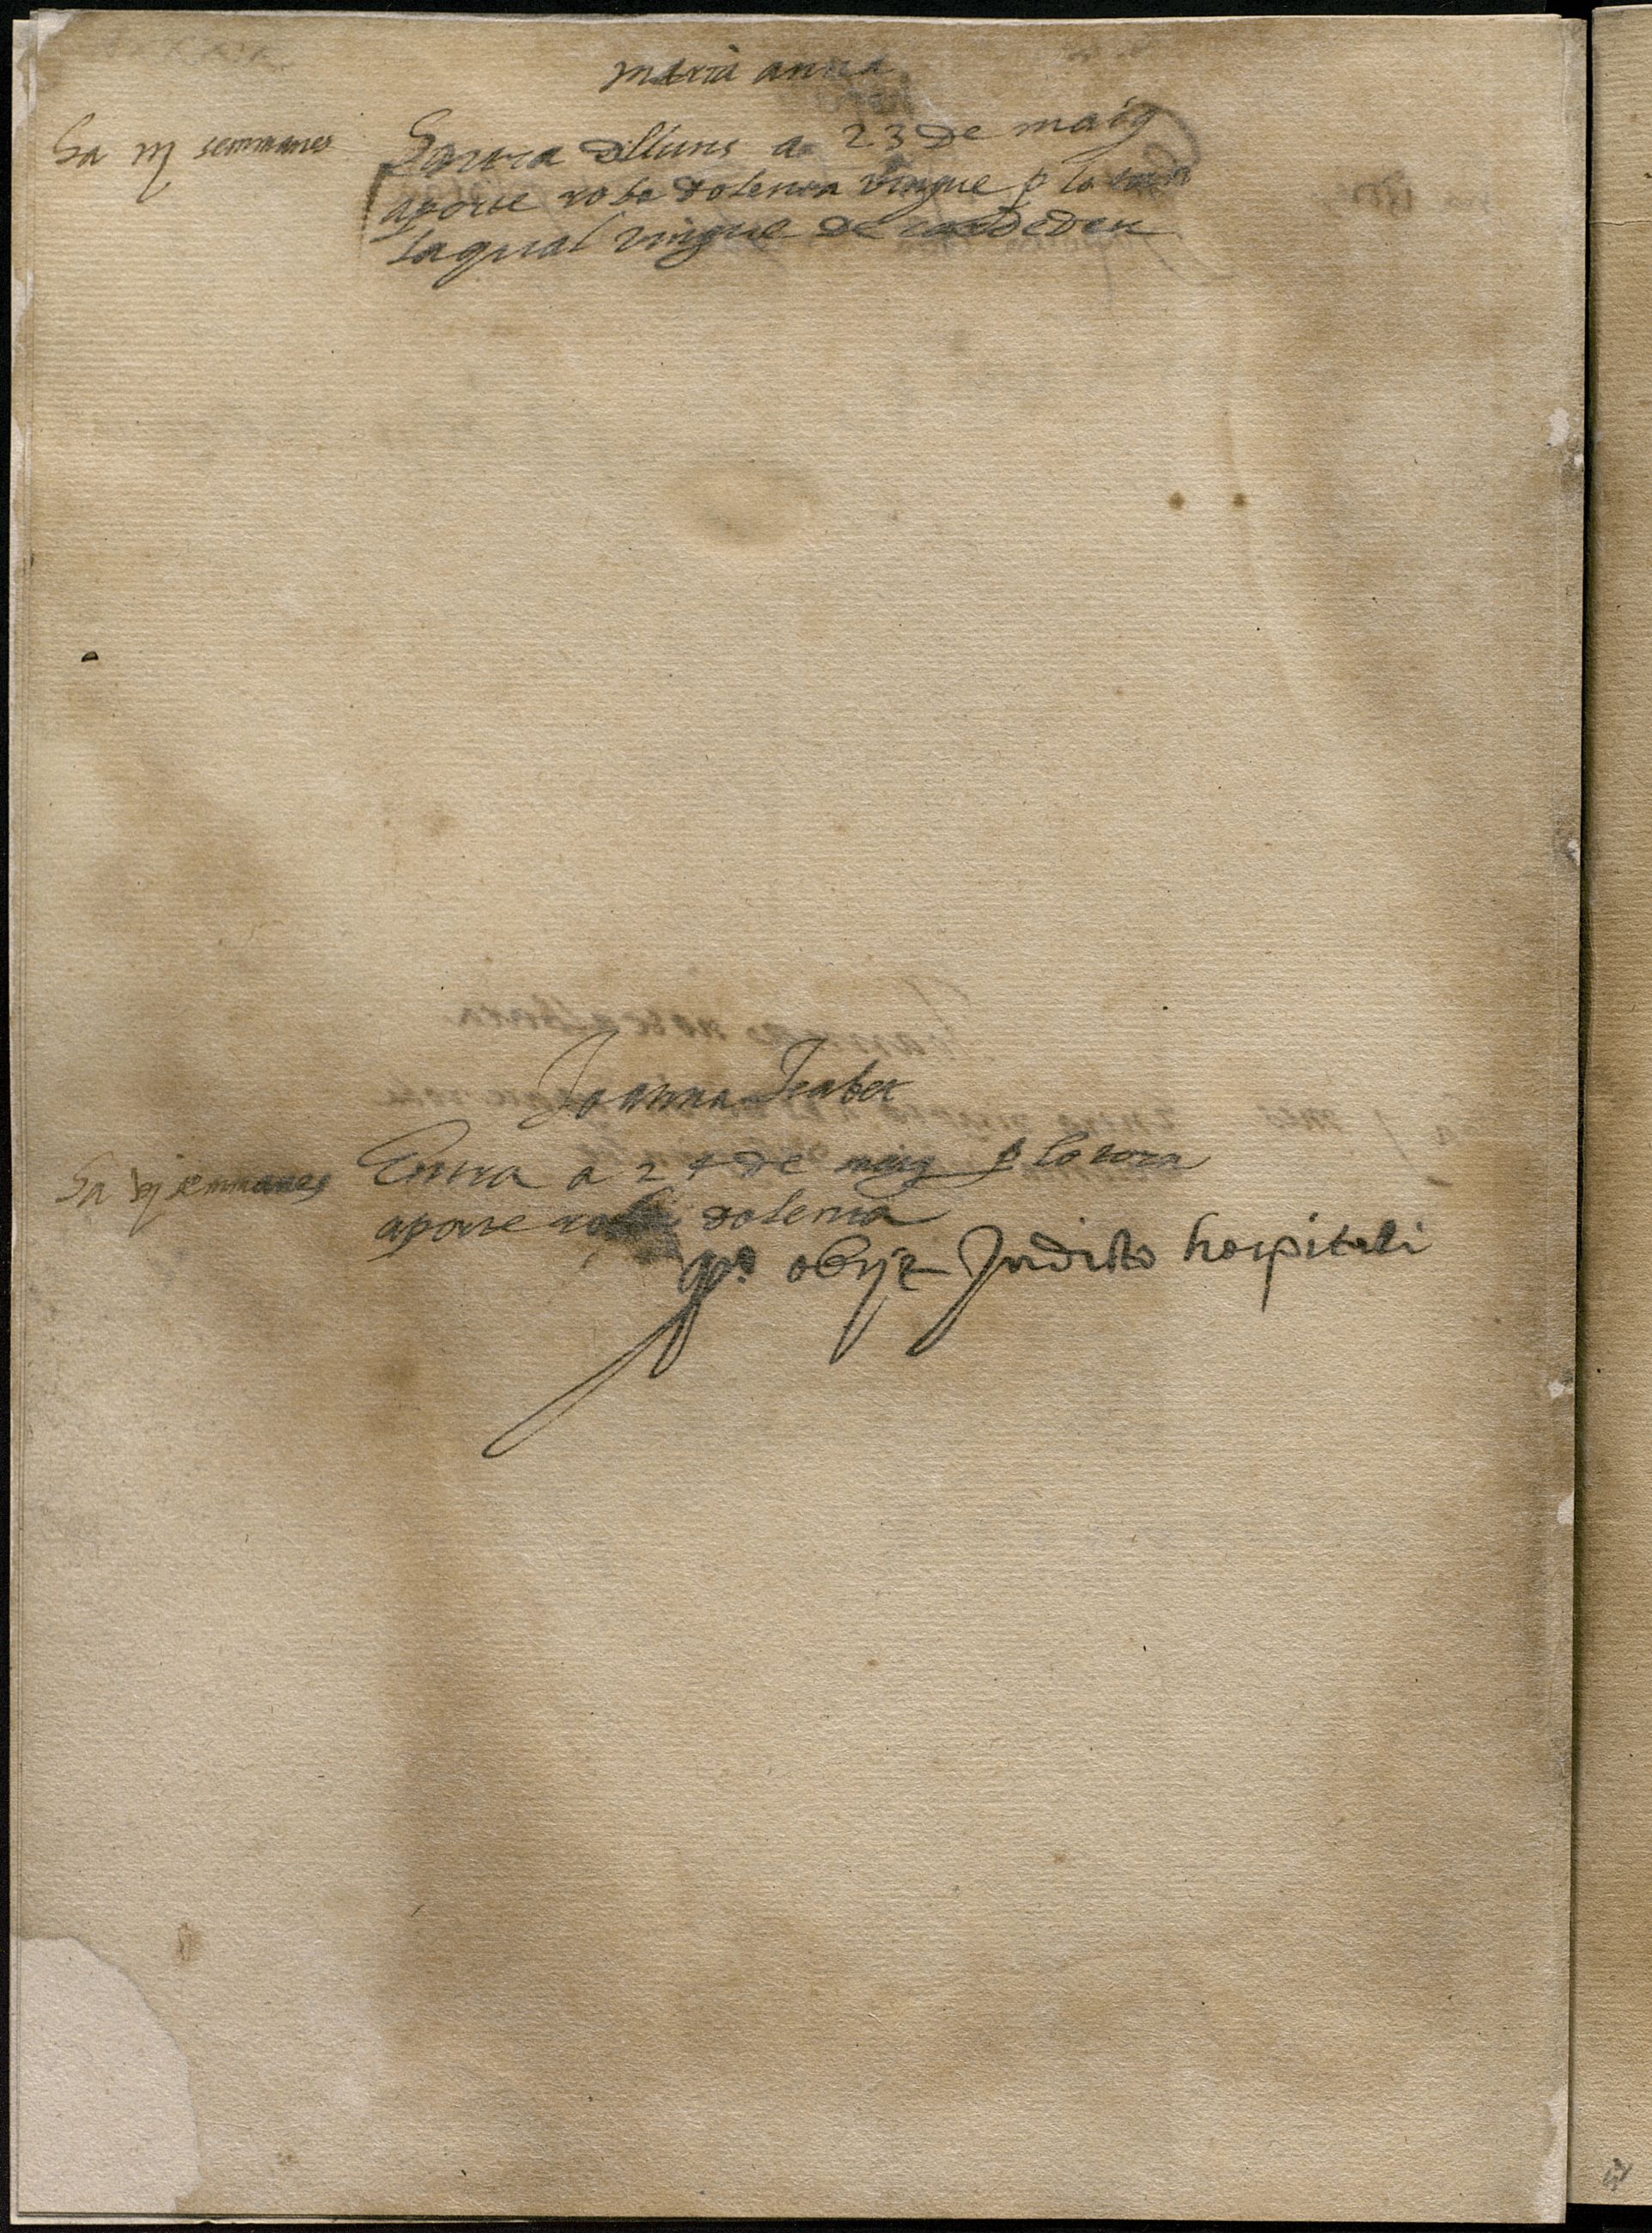 maria anna
Sa iij semmanes
Entra dilluns a 23 de maig
aporte roba dolenta vingue p lo torn
laqual vingue de
Joanna Isabet
Sa vj semmanes
Entra a 24 de maig p lo torn
aporte roba dolenta
obijt In dicto hospitali